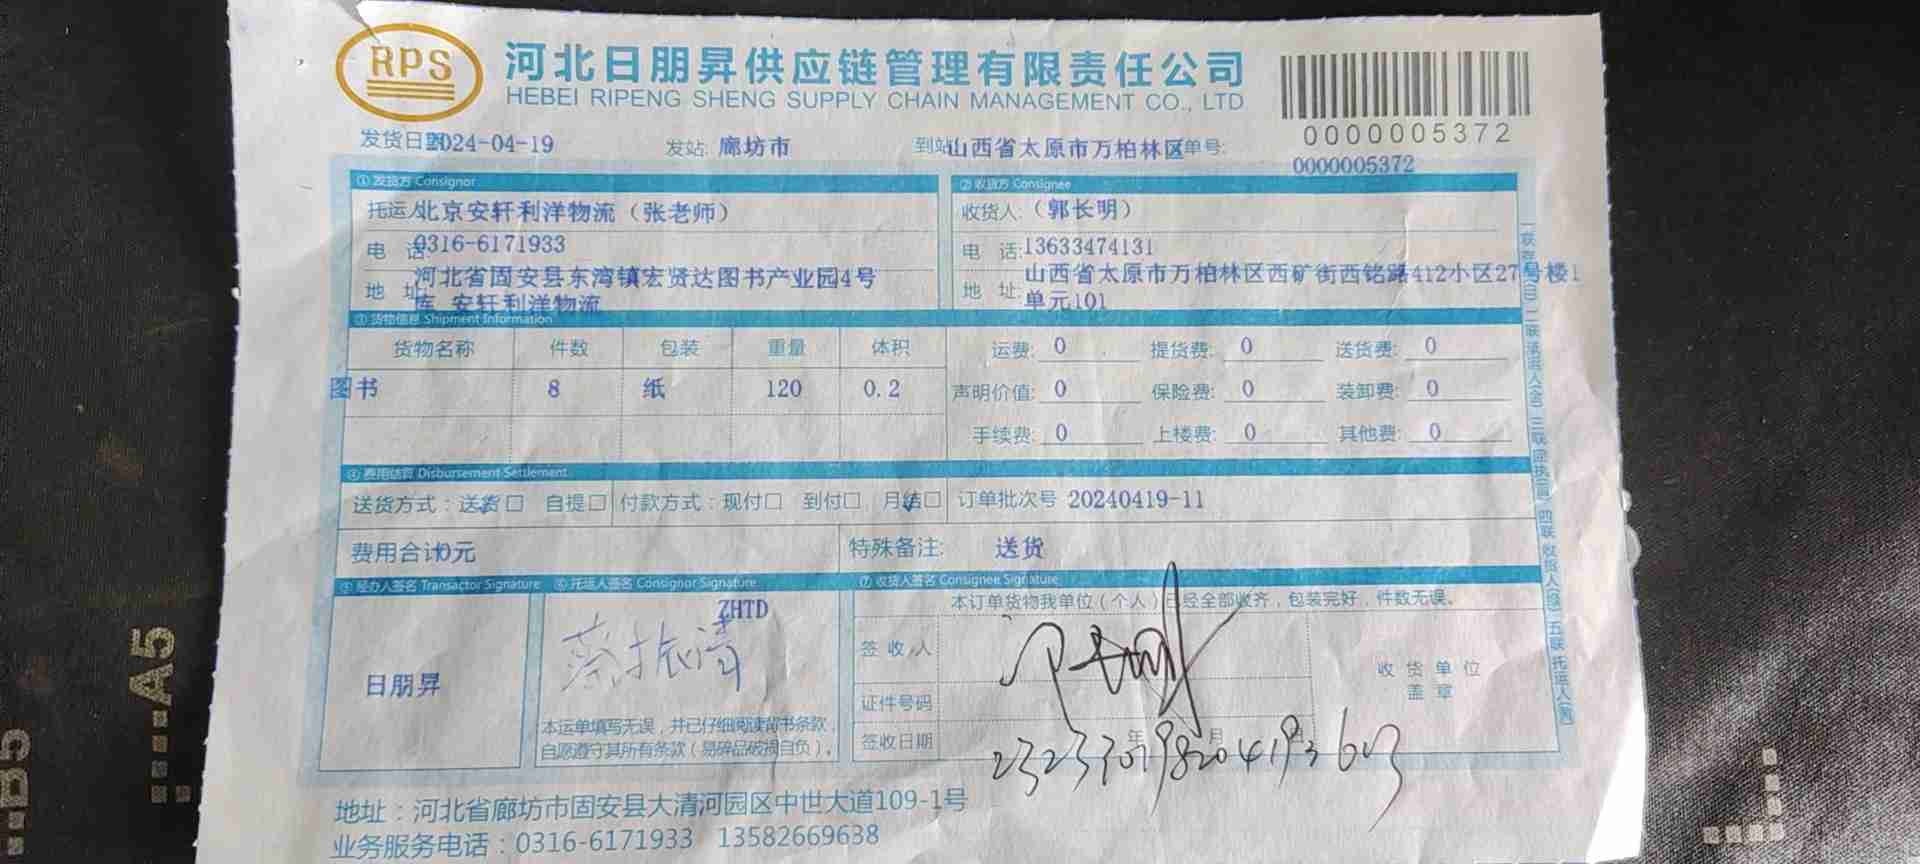 RPS
河北日朋昇供应链管理有限责任公司
HEBEI RIPENG SHENG SUPPLY CHAIN MANAGEMENT CO., LTD
0000005372
发货日期2024-04-19 发站: 廊坊市 到站山西省太原市万柏林区单号:
0000005372
①发货方 Consignor ②收货方 Consignee
托运人北京安轩利洋物流（张老师） 收货人:（郭长明）
电 话:0316-6171933 电 话:13633474131
地 址 河北省固安县东湾镇宏贤达图书产业园4号
库 安轩利洋物流
地 址: 山西省太原市万柏林区西矿街西铭路412小区27号楼1
单元101
③货物信息 Shipment Information
货物名称 件数 包装 重量 体积 运费: 0 提货费: 0 送货费: 0
图书 8 纸 120 0.2 声明价值: 0 保险费: 0 装卸费: 0
手续费: 0 上楼费: 0 其他费: 0
④费用结算 Disbursement Settlement
送货方式：送货□ 自提□ 付款方式：现付□ 到付□ 月结□ 订单批次号 20240419-11
费用合计0元 特殊备注: 送货
⑤经办人签名 Transactor Signature ⑥托运人签名 Consignor Signature ⑦收货人签名 Consignee Signature
ZHTD
本订单货物我单位（个人）已经全部收齐，包装完好，件数无误。
蔡振清
签收人
日朋昇
收货单位
盖章
证件号码
本运单填写无误，并已仔细阅读背书条款，
自愿遵守其所有条款（易碎品破损自负）。
签收日期 年 月
地址：河北省廊坊市固安县大清河园区中世大道109-1号
业务服务电话：0316-6171933 13582669638
A5
B5